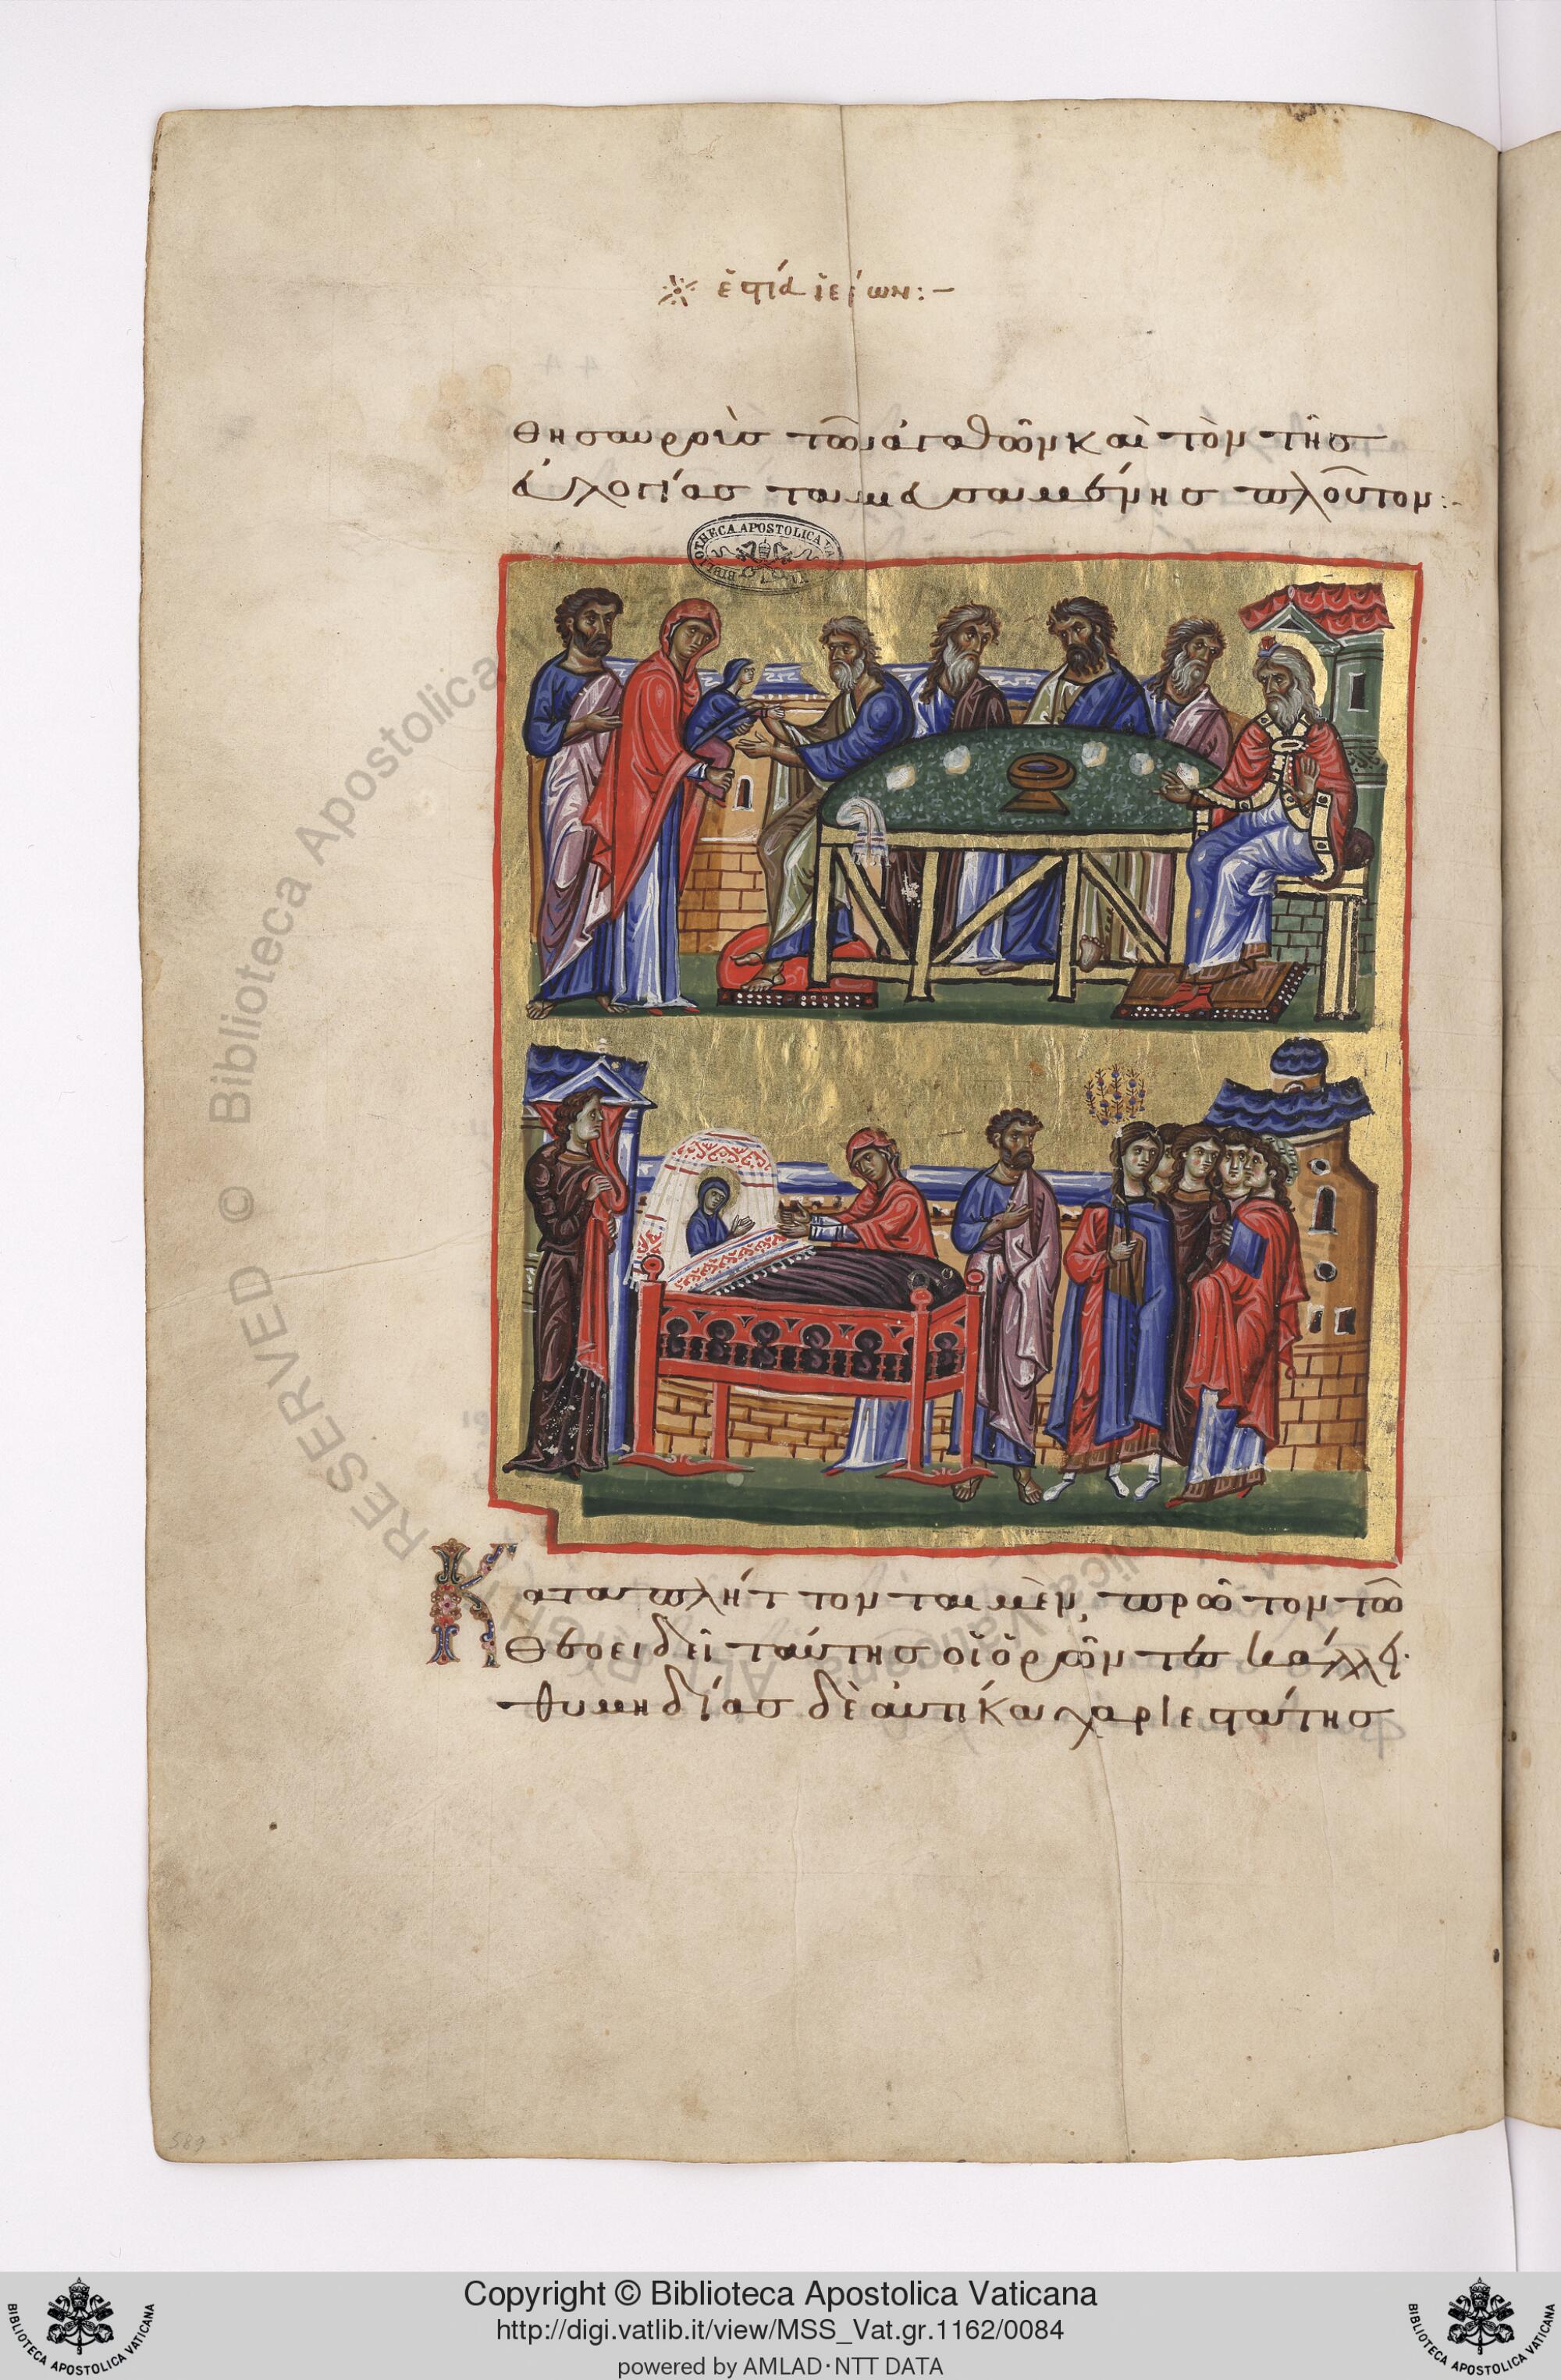 ἑστία ἱερέων:—
θησαυροὺς τῶν ἀγαθῶν καὶ τὸν τῆς
εὐλογίας ταμιευσαμένης πλοῦτον:-
BIBLIOTHECA APOSTOLICA VATICANA
Καταπλήττομαι μὲν, πρῶτον τῶ
θεοειδεῖ ταύτης τῶ κάλλει·
θυμηδίας δὲ αὐτίκα χαριεστάτης
Copyright © Biblioteca Apostolica Vaticana
http://digi.vatlib.it/view/MSS_Vat.gr.1162/0084
powered by AMLAD·NTT DATA
BIBLIOTECA APOSTOLICA VATICANA
BIBLIOTECA APOSTOLICA VATICANA